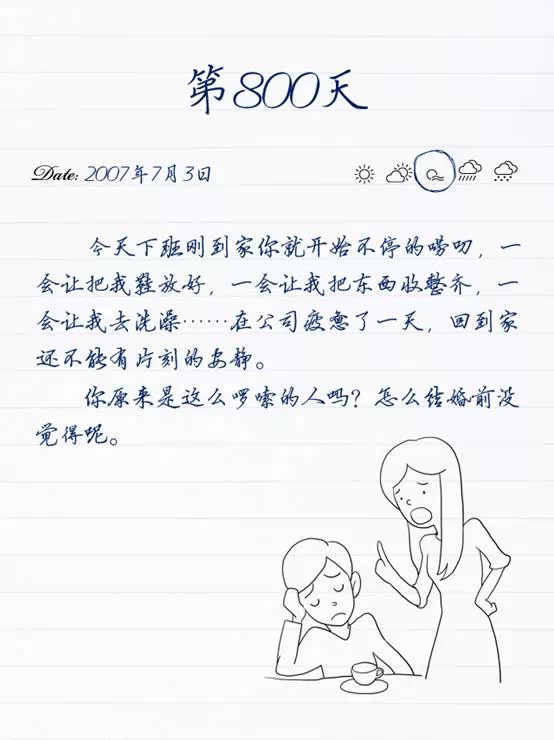 第800天
Date: 2007年7月3日
今天下班刚到家你就开始不停的唠叨，一
会让把我鞋放好，一会让我把东西收整齐，一
会让我去洗澡……在公司疲惫了一天，回到家
还不能有片刻的安静。
你原来是这么啰嗦的人吗？怎么结婚前没
觉得呢。